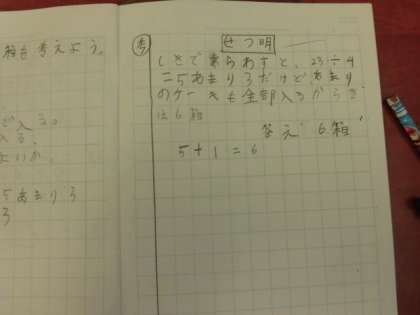 箱も考えよう。
せつ明
しきで表らわすと、23÷4
=5あまり3だけどあまり
のケーキも全部入るから
は6箱
答え 6箱
5+1=6
入る。
える。
よいか。
5あまり3
3